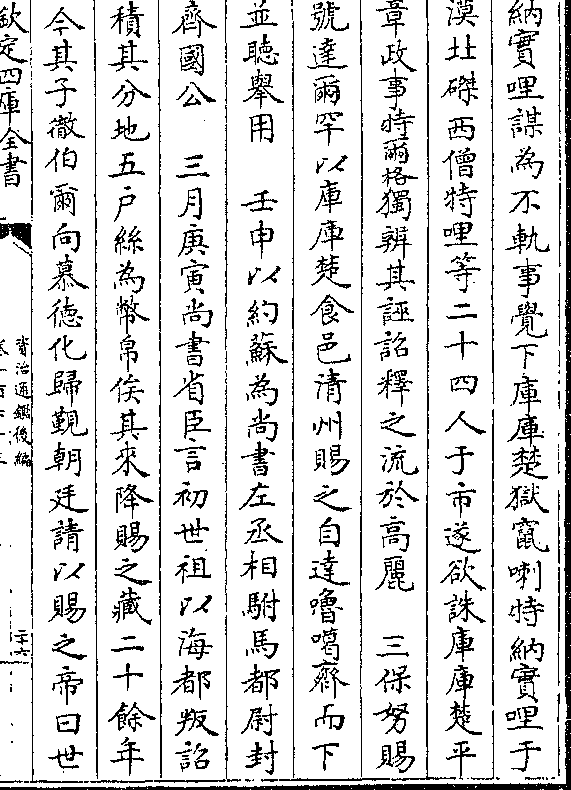 納實哩謀為不軌事覺下庫庫楚獄竄喇特納實哩于
漠北磔西僧特哩等二十四人于市遂欲誅庫庫楚平
章政事特爾格獨辨其誣詔釋之流於高麗　三保努賜
號達爾罕以庫庫楚食邑清州賜之自達嚕噶齊而下
並聽舉用　壬申以約蘇為尚書左丞相駙馬都尉封
齊國公　三月庚寅尚書省臣言初世祖以海都叛詔
積其分地五戶絲為幣帛俟其來降賜之藏二十餘年
今其子徹伯爾向慕德化歸覲朝廷請以賜之帝曰世
欽定四庫全書
資治通鑑後編
二十六